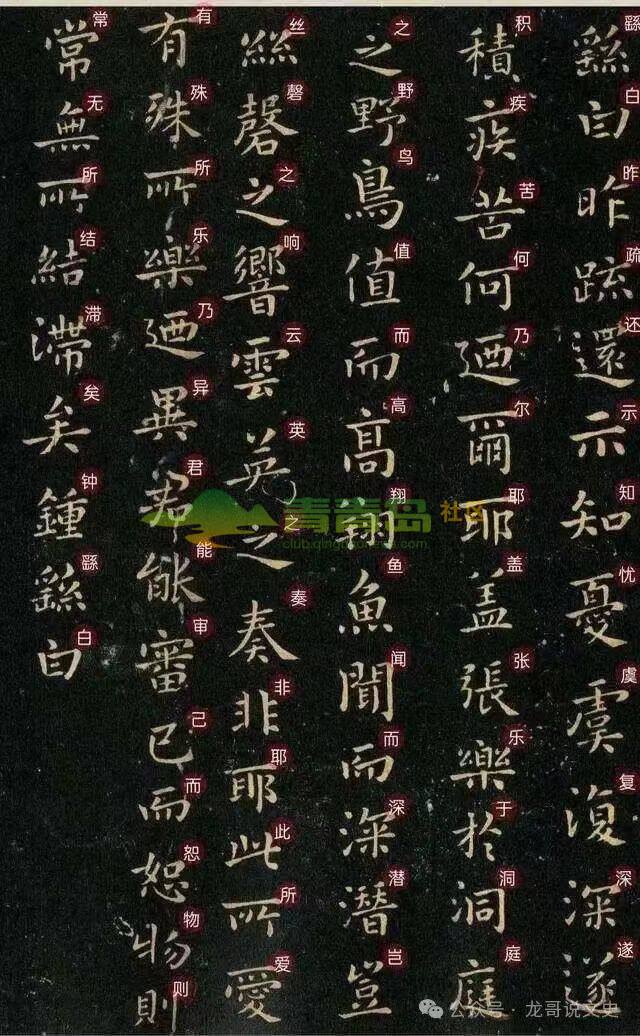 繇白昨疏還示知憂虞復深遂
繇白昨疏还示知忧虞复深遂
積疾苦何迺爾耶盖張樂於洞庭
积疾苦何乃尔耶盖张乐于洞庭
之野鳥值而髙翔魚聞而深潛豈
之野鸟值而高翔鱼闻而深潜岂
絲磬之響雲英之奏非耶此所愛
丝磬之响云英之奏非耶此所爱
有殊所樂迺異君能審己而恕物則
有殊所乐乃异君能审己而恕物则
常無所結滯矣鍾繇白
常无所结滞矣钟繇白
青青岛社区
公众号 · 龙哥说文史